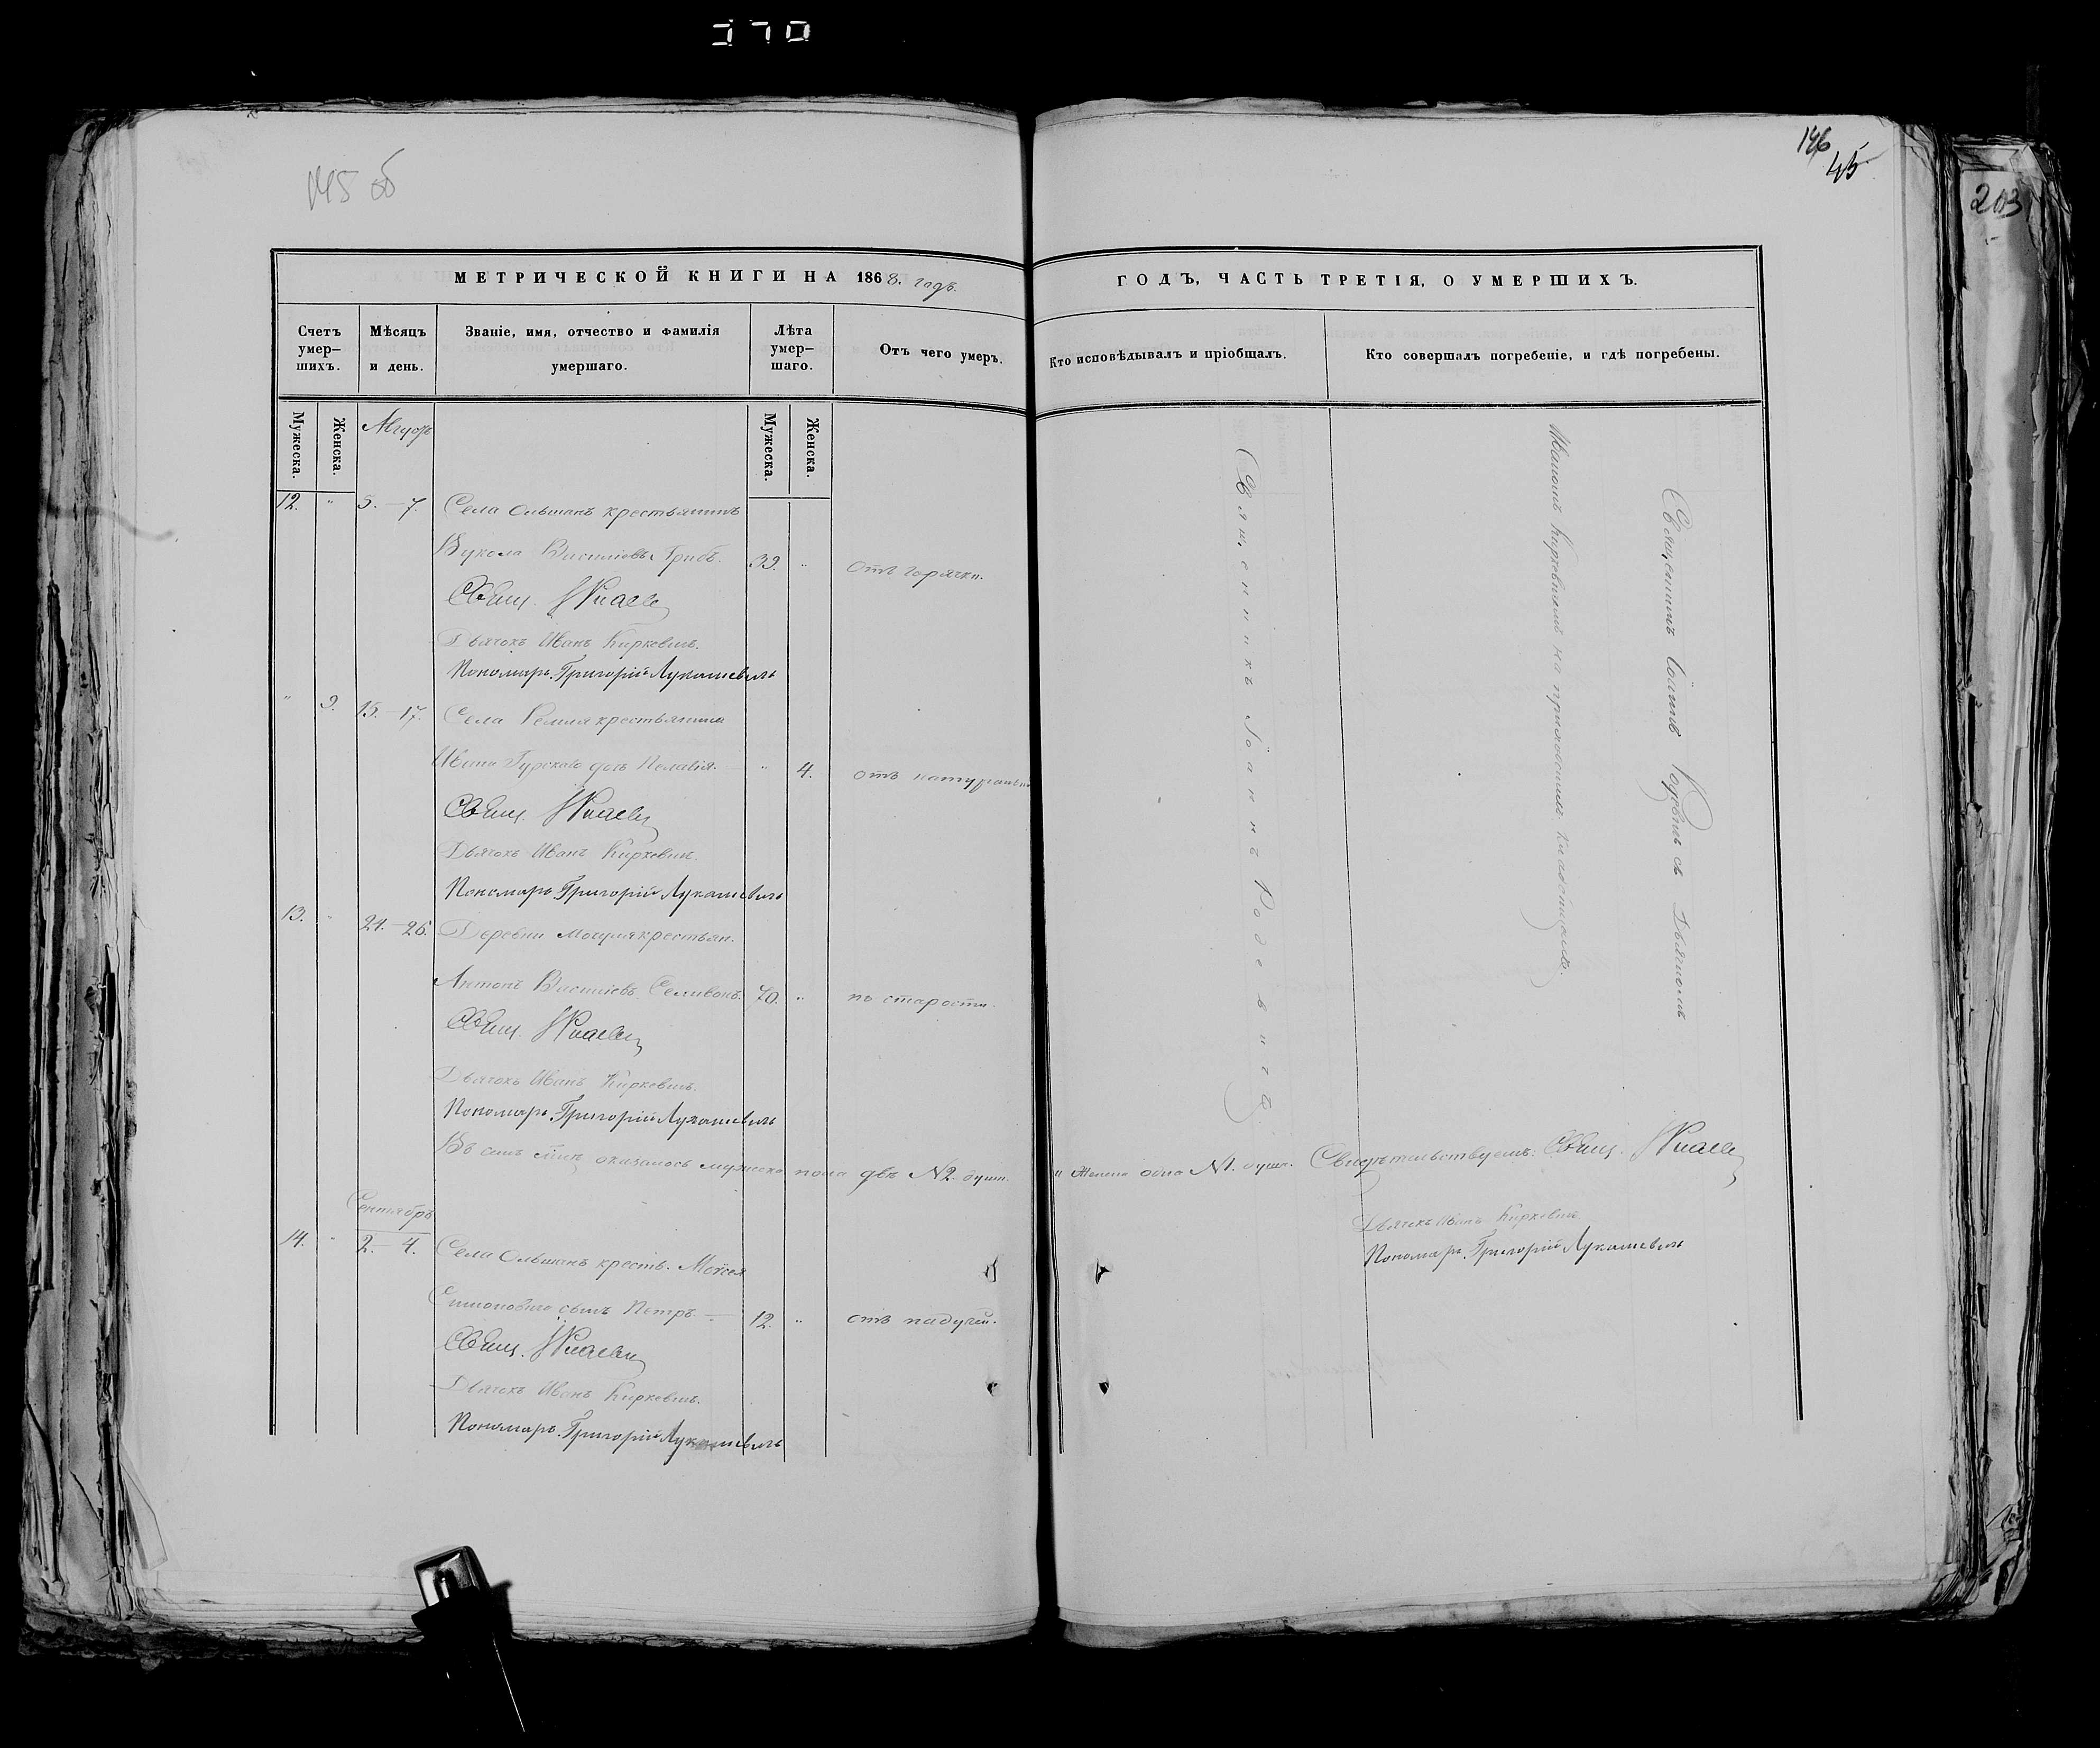 370
145 об
146
45
203
МЕТРИЧЕСКОЙ КНИГИ НА 1868. годъ.
ГОДЪ, ЧАСТЬ ТРЕТІЯ, О УМЕРШИХЪ.
Счетъ умер-шихъ.
Мѣсяцъ и день.
Званіе, имя, отчество и фамилія умершаго.
Лѣта умер-шаго.
Отъ чего умеръ.
Кто исповѣдывалъ и пріобщалъ.
Кто совершалъ погребеніе, и гдѣ погребены.
Мужеска.
Женска.
Мужеска.
Женска.
Августъ
12. " 5.—7. Села Ольшанъ крестьянинъ
Вукола Василіевъ Грибъ. 39. " отъ горячки.
Свящ.
Дьячокъ Иванъ Киркевичъ.
Пономарь Григорій Лукашевичъ
" 9. 15.—17. Села крестьянина
Ивана Гурскаго дочь Пелагія. " 4. отъ
Свящ.
Дьячокъ Иванъ Киркевичъ.
Пономарь Григорій Лукашевичъ
13. " 24.—26. Деревни крестьян.
Антонъ Василіевъ Селивонъ. 70. " по старости.
Свящ.
Дьячокъ Иванъ Киркевичъ.
Пономарь Григорій Лукашевичъ
Въ семъ оказалось мужеска пола двѣ №2. души. и Женска одна №1. душа. Свидѣтельствуемъ: Свящ.
Дьячокъ Иванъ Киркевичъ.
Пономарь Григорій Лукашевичъ
Сентябрь
14. " 2.—4. Села Ольшанъ кресть. Моисея
сынъ Петръ. 12. " отъ падучей.
Свящ.
Дьячокъ Иванъ Киркевичъ.
Пономарь Григорій Лукашевичъ
Священникъ Іоаннъ Родевичъ
Священникъ Іоаннъ Родевичъ съ Дьячкомъ
Иваномъ Киркевичемъ на приходскомъ кладбищѣ.